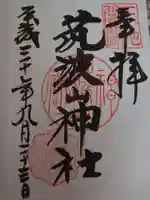 奉拝
筑波山神社
平成二十一年九月二十三日